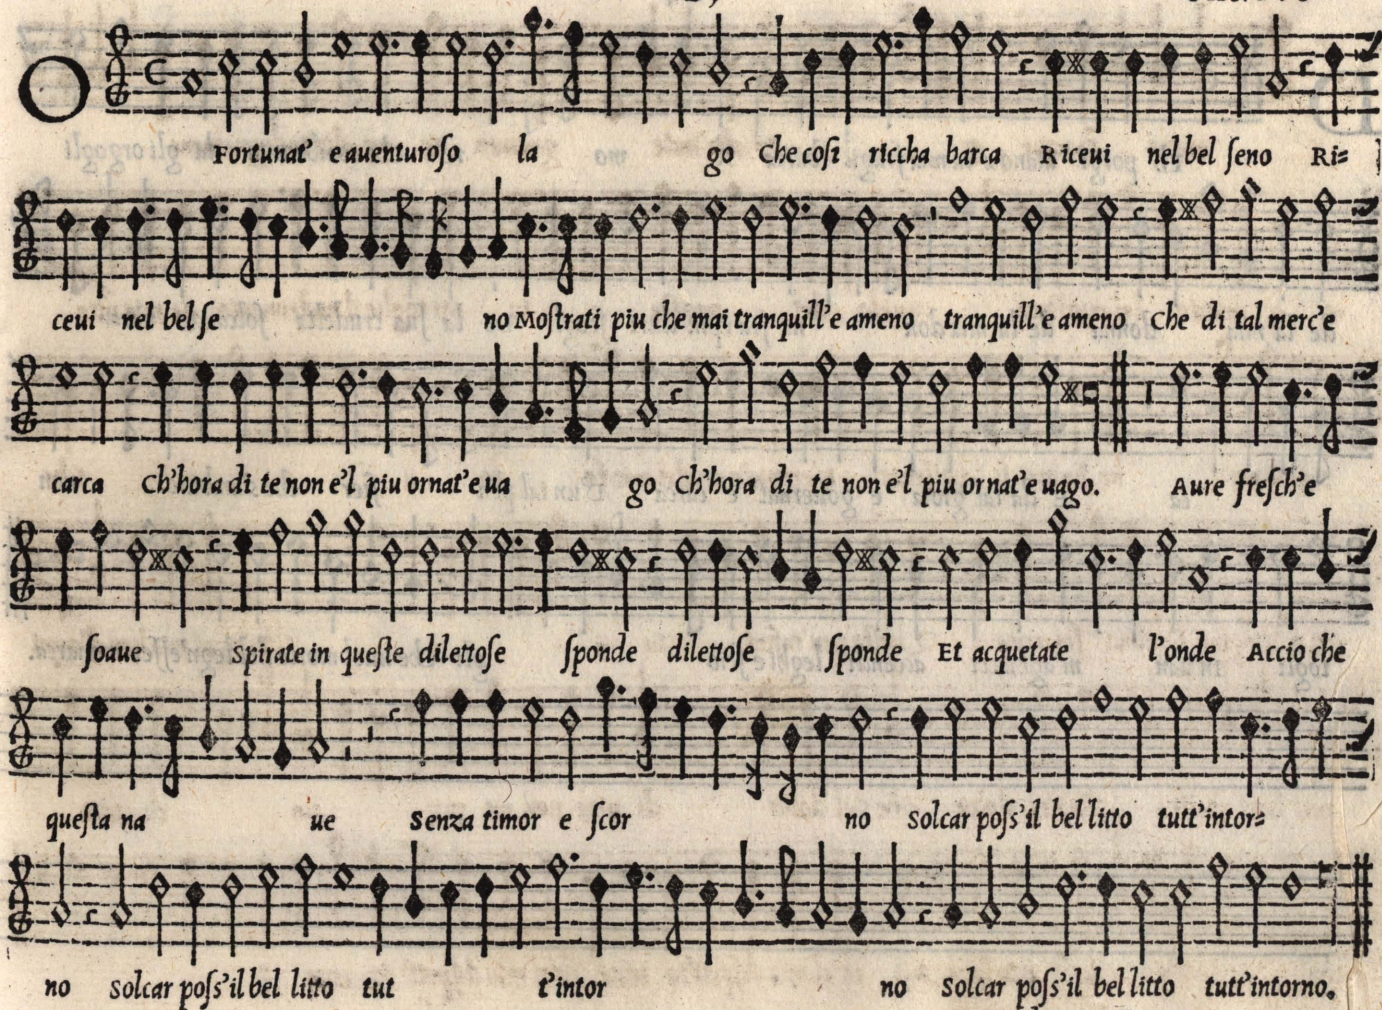 O Fortunat' e auenturoſo la go Che coſi riccha barca Riceui nel bel ſeno Ri=
ceui nel bel ſe no Moſtrati piu che mai tranquill'e ameno tranquill'e ameno Che di tal merc'e
carca Ch'hora di te non e'l piu ornat'e ua go Ch'hora di te non e'l piu ornat'e uago. Aure freſch'e
ſoaue Spirate in queſte dilettoſe ſponde dilettoſe ſponde Et acquetate l'onde Accio che
queſta na ue Senza timor e ſcor no Solcar poſs'il bel litto tutt'intor=
no Solcar poſs'il bel litto tut t'intor no Solcar poſs'il bel litto tutt'intorno.